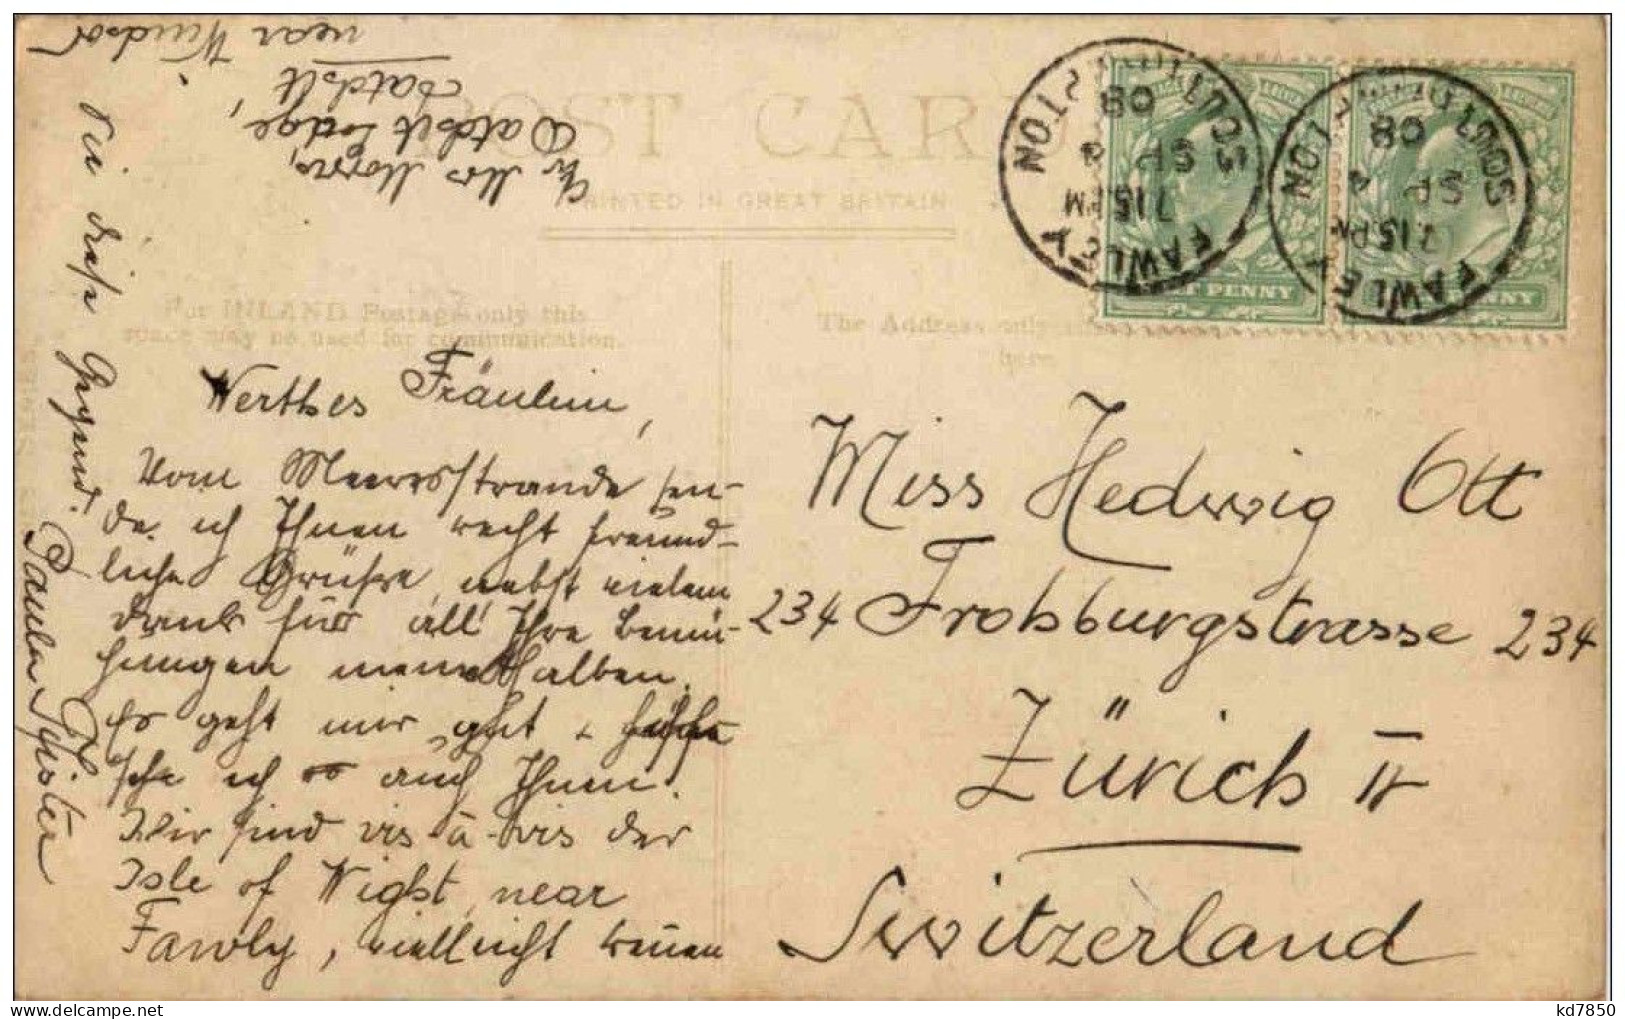 POST CARD
PRINTED IN GREAT BRITAIN
For INLAND Postage only this
space may be used for communication.
The Address only
here
FAWLEY
7.15.PM
SP
08
SOUTHAMPTON
FAWLEY
7.15.PM
SP
08
SOUTHAMPTON
HALF PENNY
HALF PENNY
Werthes Fräulein,
Vom Meeresstrande sen-
de ich Ihnen recht freund-
liche Grüsse, nebst vielem
Dank für all' Ihre Bemü-
hungen meinethalben.
Es geht mir gut & hoffe
ich es auch Ihnen.
Wir sind vis-à-vis der
Isle of Wight, near
Fawly, vielleicht kennen
Sie diese Gegend.
Paula
Mrs Morris,
Datchet Lodge,
Datchet
near Windsor
Miss Hedwig Ott
234 Frohburgstrasse 234
Zürich IV
Switzerland
kd7850